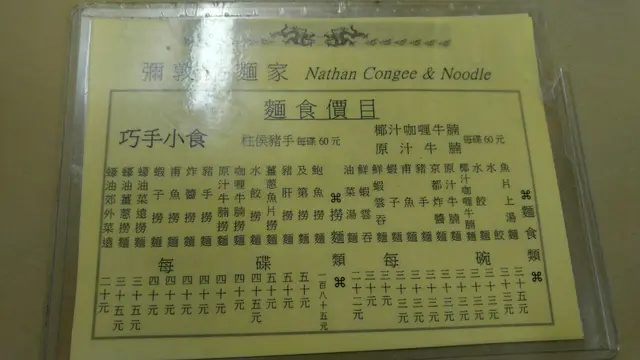 彌敦粥麵家 Nathan Congee & Noodle
麵食價目
巧手小食
柱侯豬手 每碟60元
椰汁咖喱牛腩
原汁牛腩
每碟60元
⌘麵食類⌘
每碗
魚片上湯麵 三十五元
水餃 三十三元
水餃麵 三十三元
椰汁咖喱牛腩麵 三十三元
原汁牛腩麵 三十三元
京都炸醬麵
豬手麵
甫魚麵
蝦子麵
鮮蝦雲吞麵
鮮蝦雲吞
油菜湯麵 二十二元
⌘撈麵類⌘
每碟
鮑魚撈麵 一百八十五元
及第撈麵 五十元
豬肝撈麵 五十元
薑蔥魚片撈麵 五十元
水餃撈麵 四十五元
咖喱牛腩撈麵 四十元
原汁牛腩撈麵 四十元
豬手撈麵 四十元
炸醬撈麵 四十元
甫魚撈麵 四十元
蝦子撈麵 四十元
蠔油菜遠撈麵 三十五元
蠔油薑蔥撈麵 三十五元
蠔油郊外菜遠 二十元